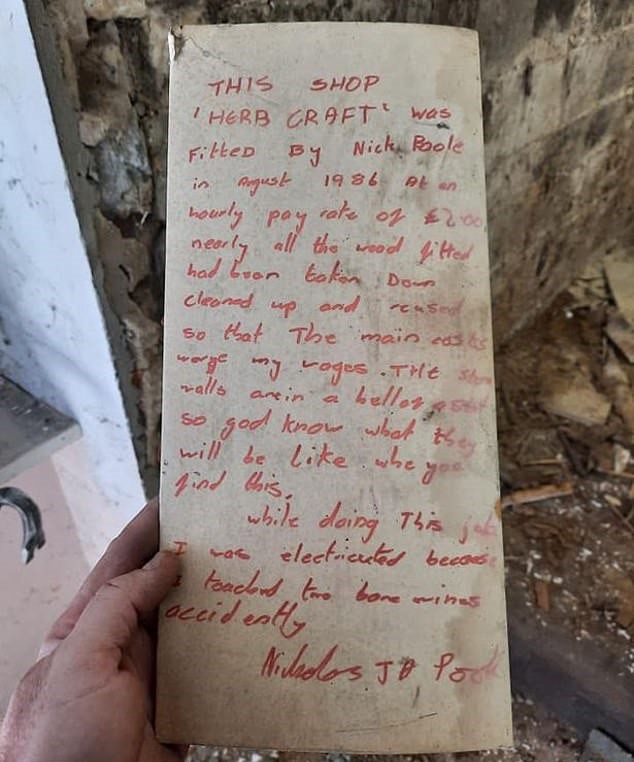 THIS SHOP
'HERB CRAFT' was
Fitted By Nick Poole
in August 1986 At an
hourly pay rate of £2.00
nearly all the wood fitted
had been taken Down
cleaned up and reused
so that The main costs
werge my wages. THE
walls are in a
so god know what they
will be like whe you
find this.
while doing This job
I was electricuted because
I touched two bare wires
accidently
Nicholas J Poole